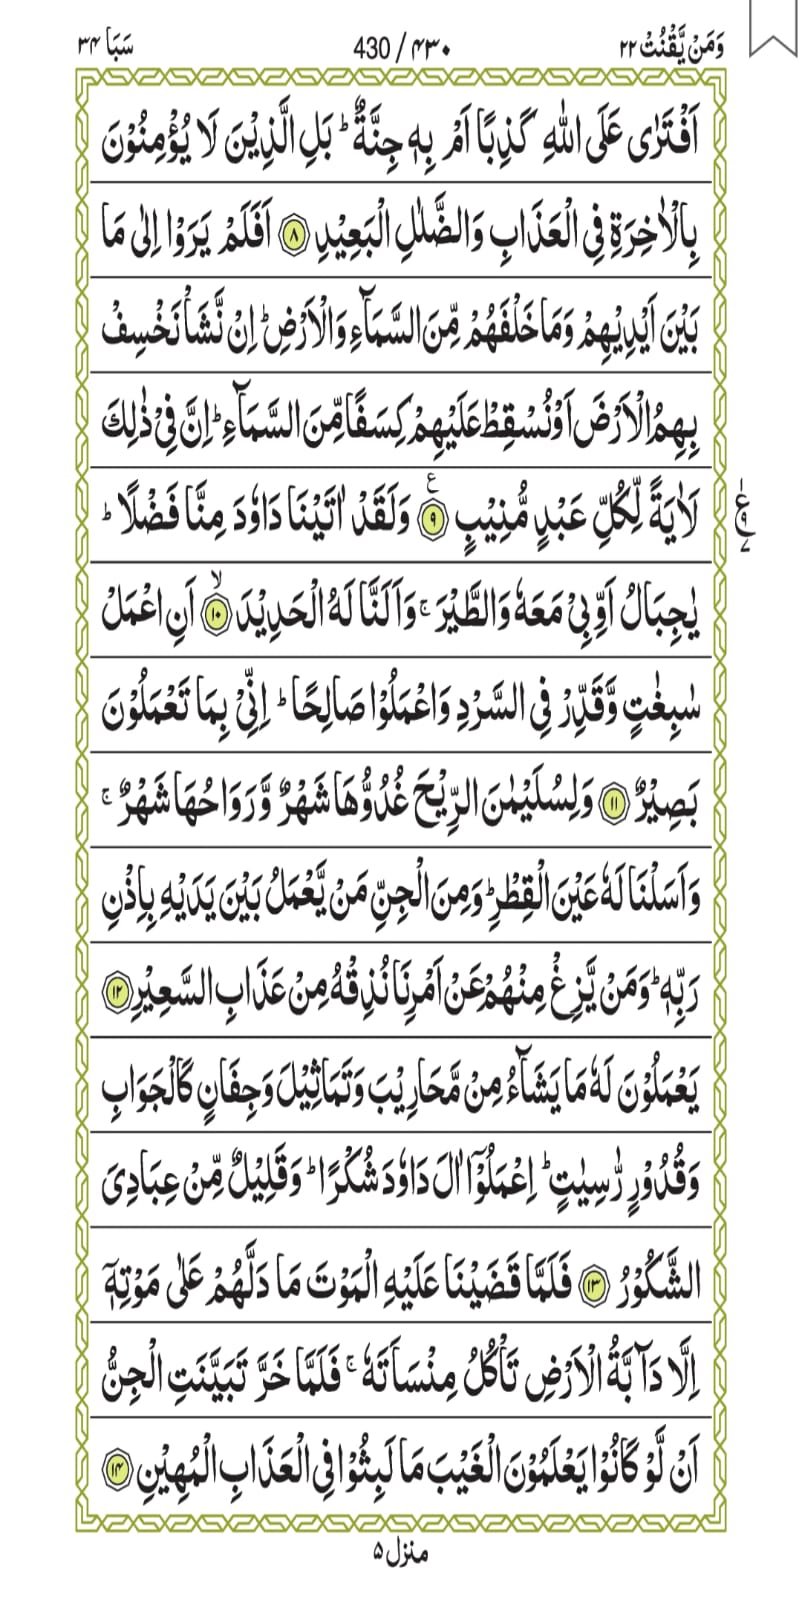 وَمَنْ يَّقْنُتْ ۲۲
۴۳۰ / 430
سَبَاَ ۳۴
اَفْتَرٰى عَلَى اللّٰهِ كَذِبًا اَمْ بِهٖ جِنَّةٌ ؕ بَلِ الَّذِيْنَ لَا يُؤْمِنُوْنَ
بِالْاٰخِرَةِ فِى الْعَذَابِ وَالضَّلٰلِ الْبَعِيْدِ ۸ اَفَلَمْ يَرَوْا اِلٰى مَا
بَيْنَ اَيْدِيْهِمْ وَمَا خَلْفَهُمْ مِّنَ السَّمَآءِ وَالْاَرْضِ ؕ اِنْ نَّشَاْ نَخْسِفْ
بِهِمُ الْاَرْضَ اَوْ نُسْقِطْ عَلَيْهِمْ كِسَفًا مِّنَ السَّمَآءِ ؕ اِنَّ فِىْ ذٰلِكَ
لَاٰيَةً لِّكُلِّ عَبْدٍ مُّنِيْبٍ ۹ ع وَلَقَدْ اٰتَيْنَا دَاوٗدَ مِنَّا فَضْلًا ؕ
ع ۱ ۹ ۷
يٰجِبَالُ اَوِّبِىْ مَعَهٗ وَالطَّيْرَ ۚ وَاَلَنَّا لَهُ الْحَدِيْدَ ۱۰ ۙ اَنِ اعْمَلْ
سٰبِغٰتٍ وَّقَدِّرْ فِى السَّرْدِ وَاعْمَلُوْا صَالِحًا ؕ اِنِّىْ بِمَا تَعْمَلُوْنَ
بَصِيْرٌ ۱۱ وَلِسُلَيْمٰنَ الرِّيْحَ غُدُوُّهَا شَهْرٌ وَّرَوَاحُهَا شَهْرٌ ۚ
وَاَسَلْنَا لَهٗ عَيْنَ الْقِطْرِ ؕ وَمِنَ الْجِنِّ مَنْ يَّعْمَلُ بَيْنَ يَدَيْهِ بِاِذْنِ
رَبِّهٖ ؕ وَمَنْ يَّزِغْ مِنْهُمْ عَنْ اَمْرِنَا نُذِقْهُ مِنْ عَذَابِ السَّعِيْرِ ۱۲
يَعْمَلُوْنَ لَهٗ مَا يَشَآءُ مِنْ مَّحَارِيْبَ وَتَمَاثِيْلَ وَجِفَانٍ كَالْجَوَابِ
وَقُدُوْرٍ رّٰسِيٰتٍ ؕ اِعْمَلُوْٓا اٰلَ دَاوٗدَ شُكْرًا ؕ وَقَلِيْلٌ مِّنْ عِبَادِىَ
الشَّكُوْرُ ۱۳ فَلَمَّا قَضَيْنَا عَلَيْهِ الْمَوْتَ مَا دَلَّهُمْ عَلٰى مَوْتِهٖٓ
اِلَّا دَآبَّةُ الْاَرْضِ تَاْكُلُ مِنْسَاَتَهٗ ۚ فَلَمَّا خَرَّ تَبَيَّنَتِ الْجِنُّ
اَنْ لَّوْ كَانُوْا يَعْلَمُوْنَ الْغَيْبَ مَا لَبِثُوْا فِى الْعَذَابِ الْمُهِيْنِ ۱۴
منزل ۵